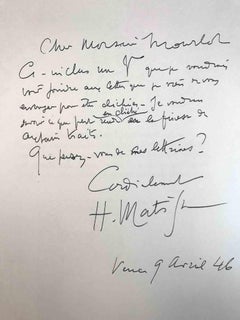 Cher Monsieur Mourlot
Ci-inclus un que je voudrais
vous joindre aux lettres que je viens de vous
envoyer par clichés - Je voudrais
savoir ce que peut en cliché la finesse de
certains traits.
Que pensez-vous de mes lettrines ?
Cordialement
H. Matisse
Vence 9 Avril 46